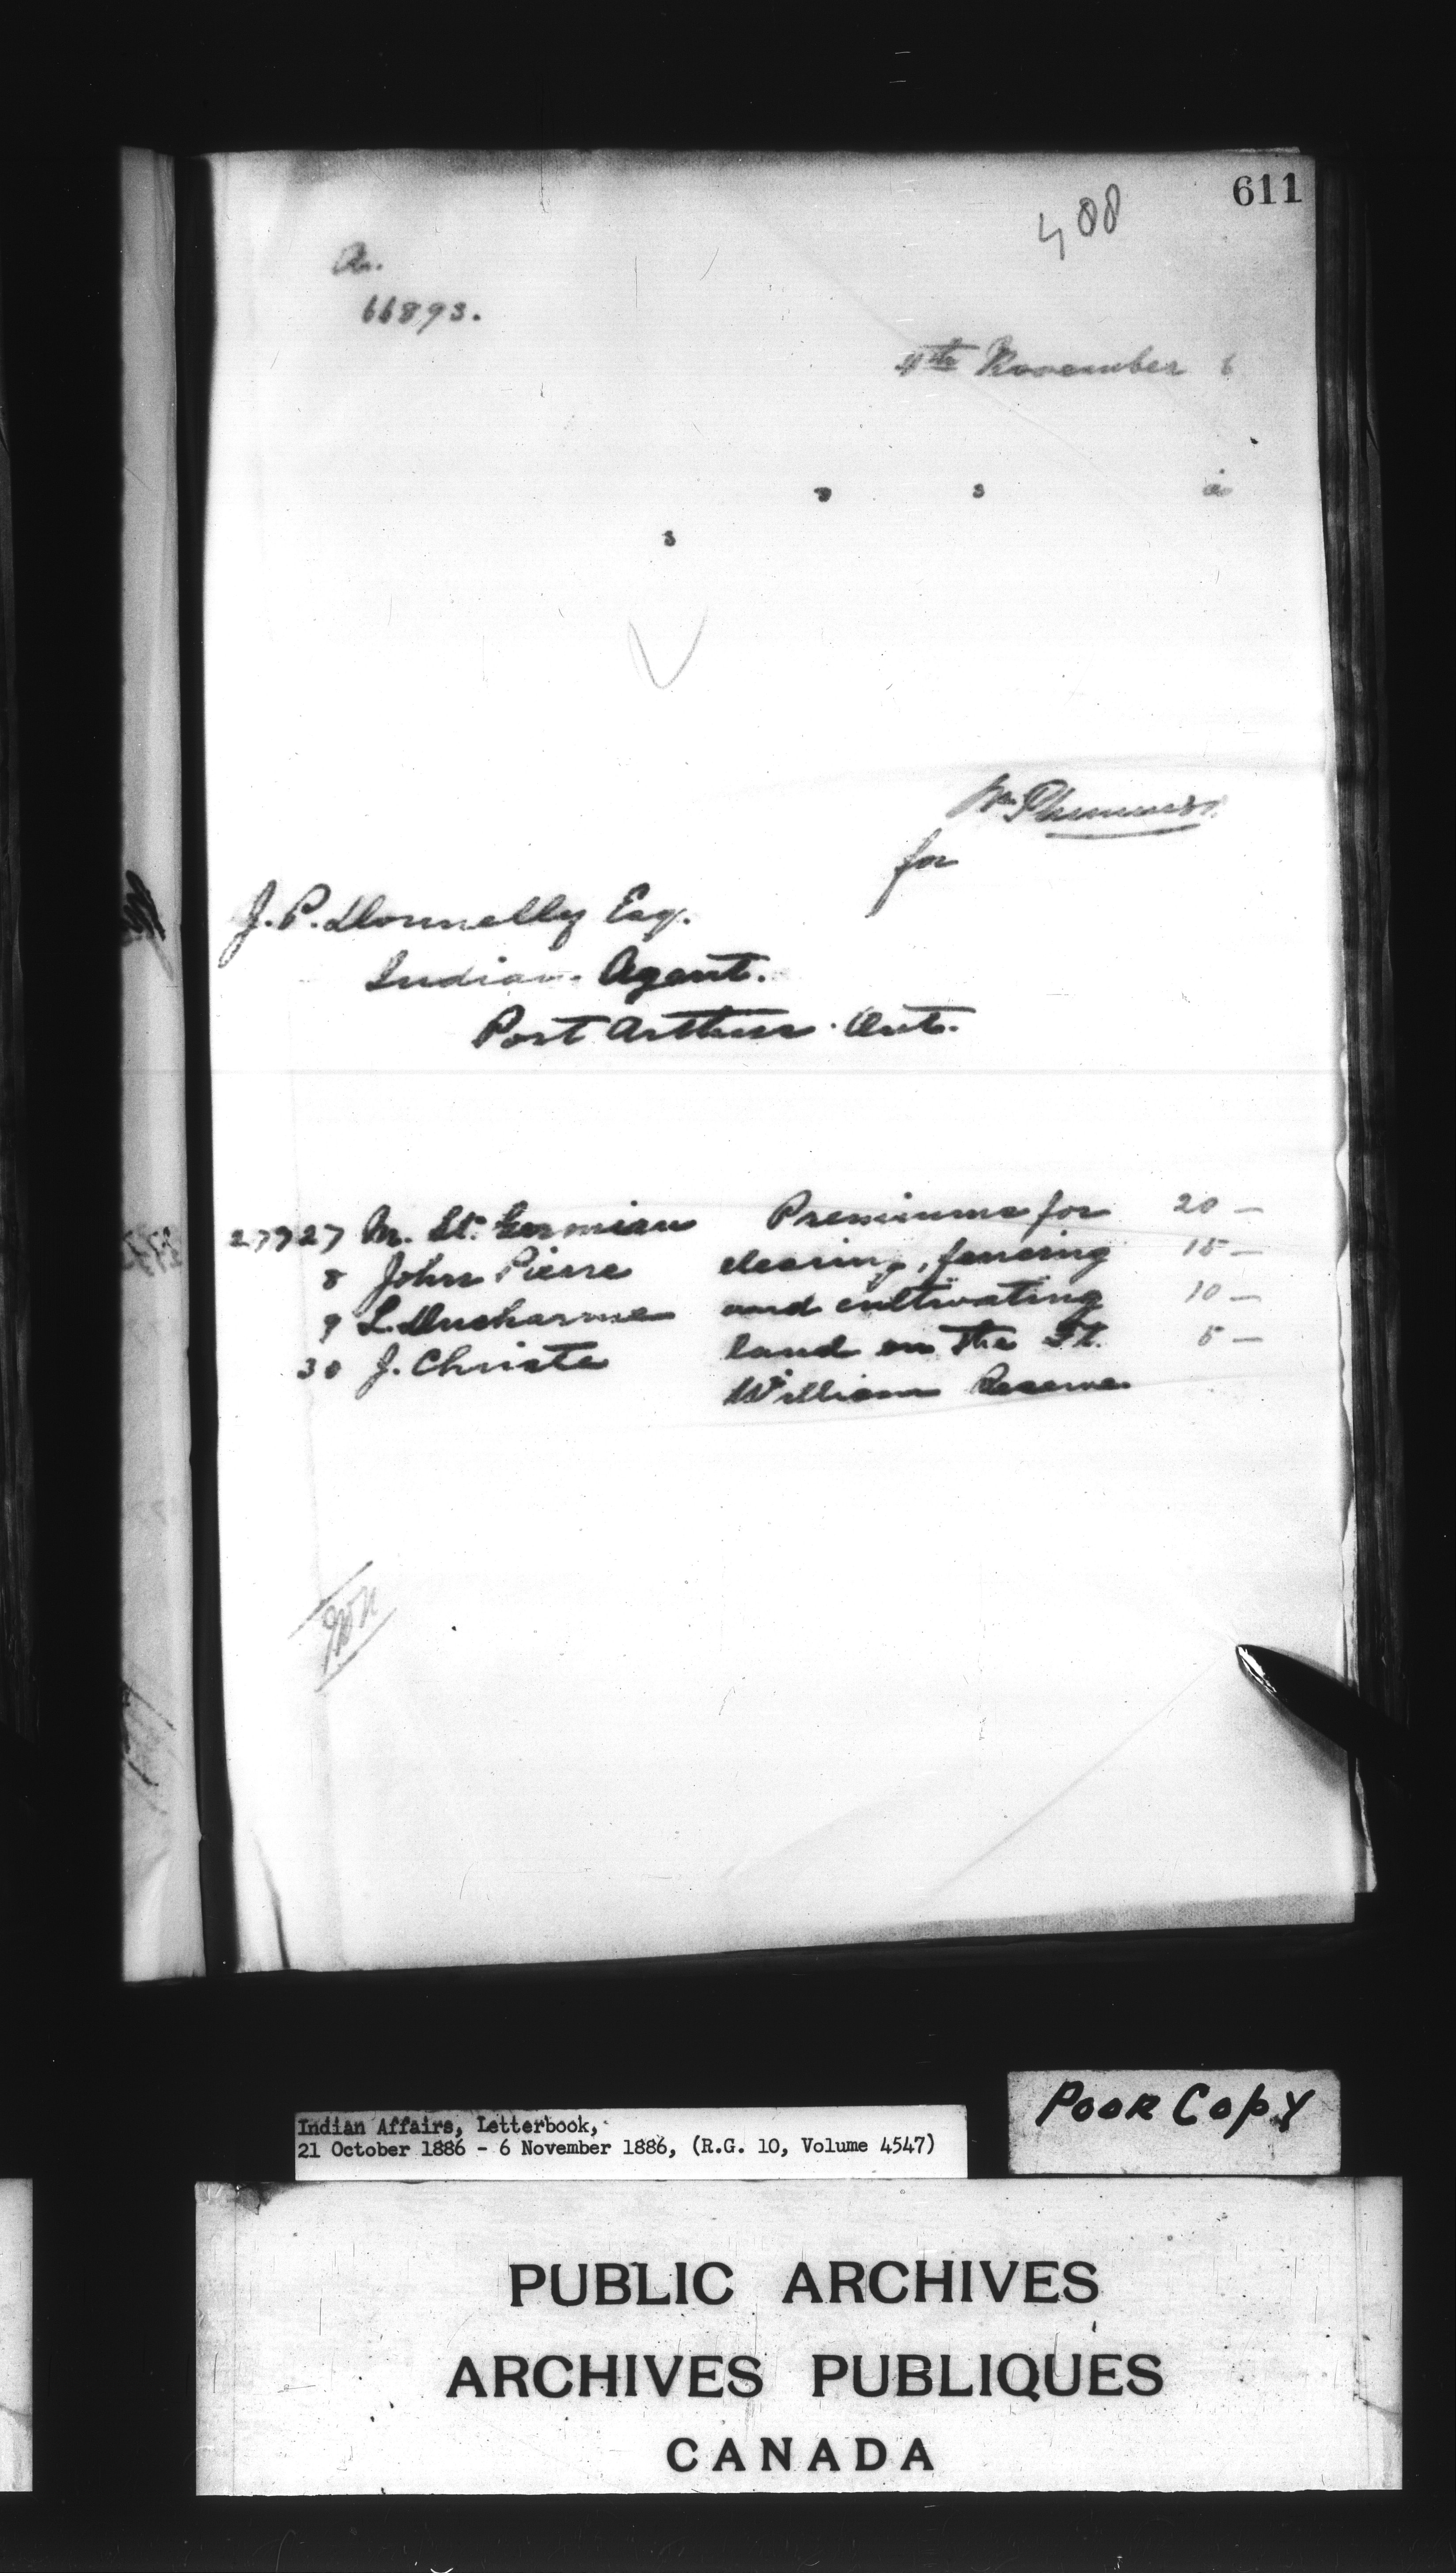 611
400
A.
66893.
4th November 6
s s a
s
Wm Plummer
for
J. P. Donnelly Esq.
Indian Agent.
Port Arthur. Ont.
27927 M. St. Germian Premiums for 20 —
8 John Pierre clearing, fencing 15 —
9 L. Ducharme and cultivating 10 —
30 J. Christe land on the Ft. 5 —
William Reserve
Indian Affairs, Letterbook,
21 October 1886 - 6 November 1886, (R.G. 10, Volume 4547)
POOR COPY
PUBLIC ARCHIVES
ARCHIVES PUBLIQUES
CANADA